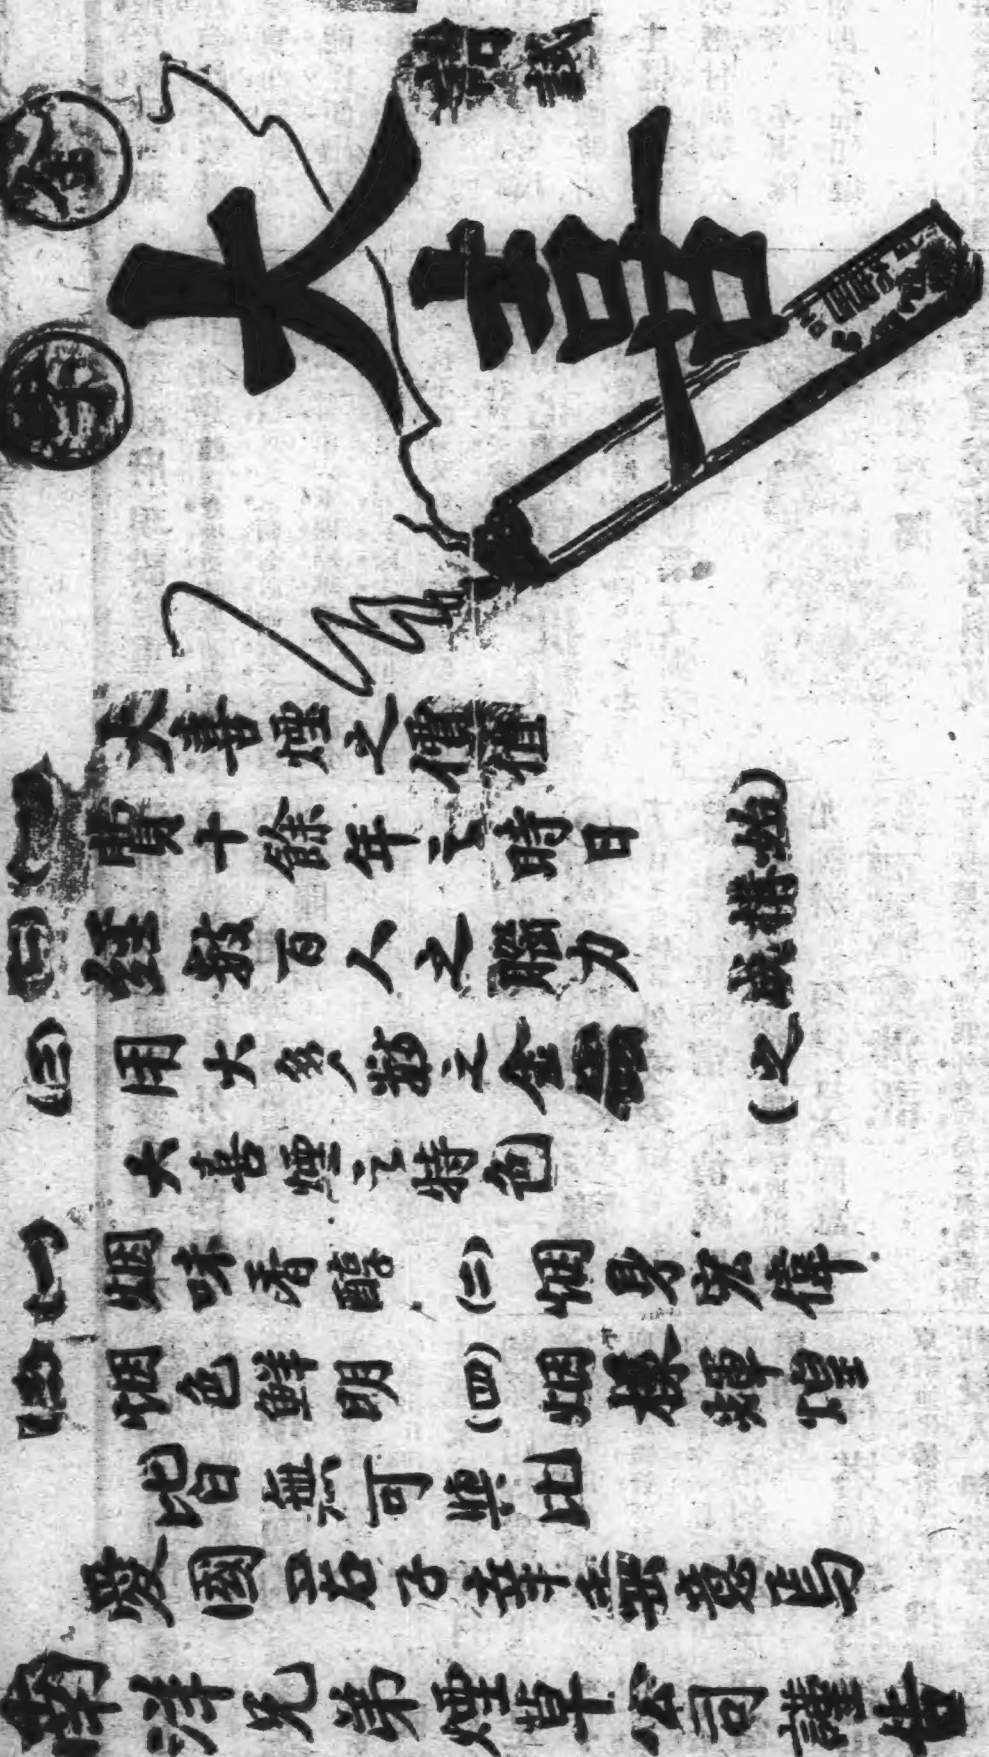 大喜
大喜煙之價值
(一)費十餘年之時日
(二)經数百人之腦力
(三)用大多数之金
(始構成之)
大喜煙之特色
(一)烟味香醇 (二)烟身宏偉
(三)烟色鮮明 (四)烟樣輝煌
皆無可與比
愛國君子幸注意焉
南洋兄弟煙草公司謹告